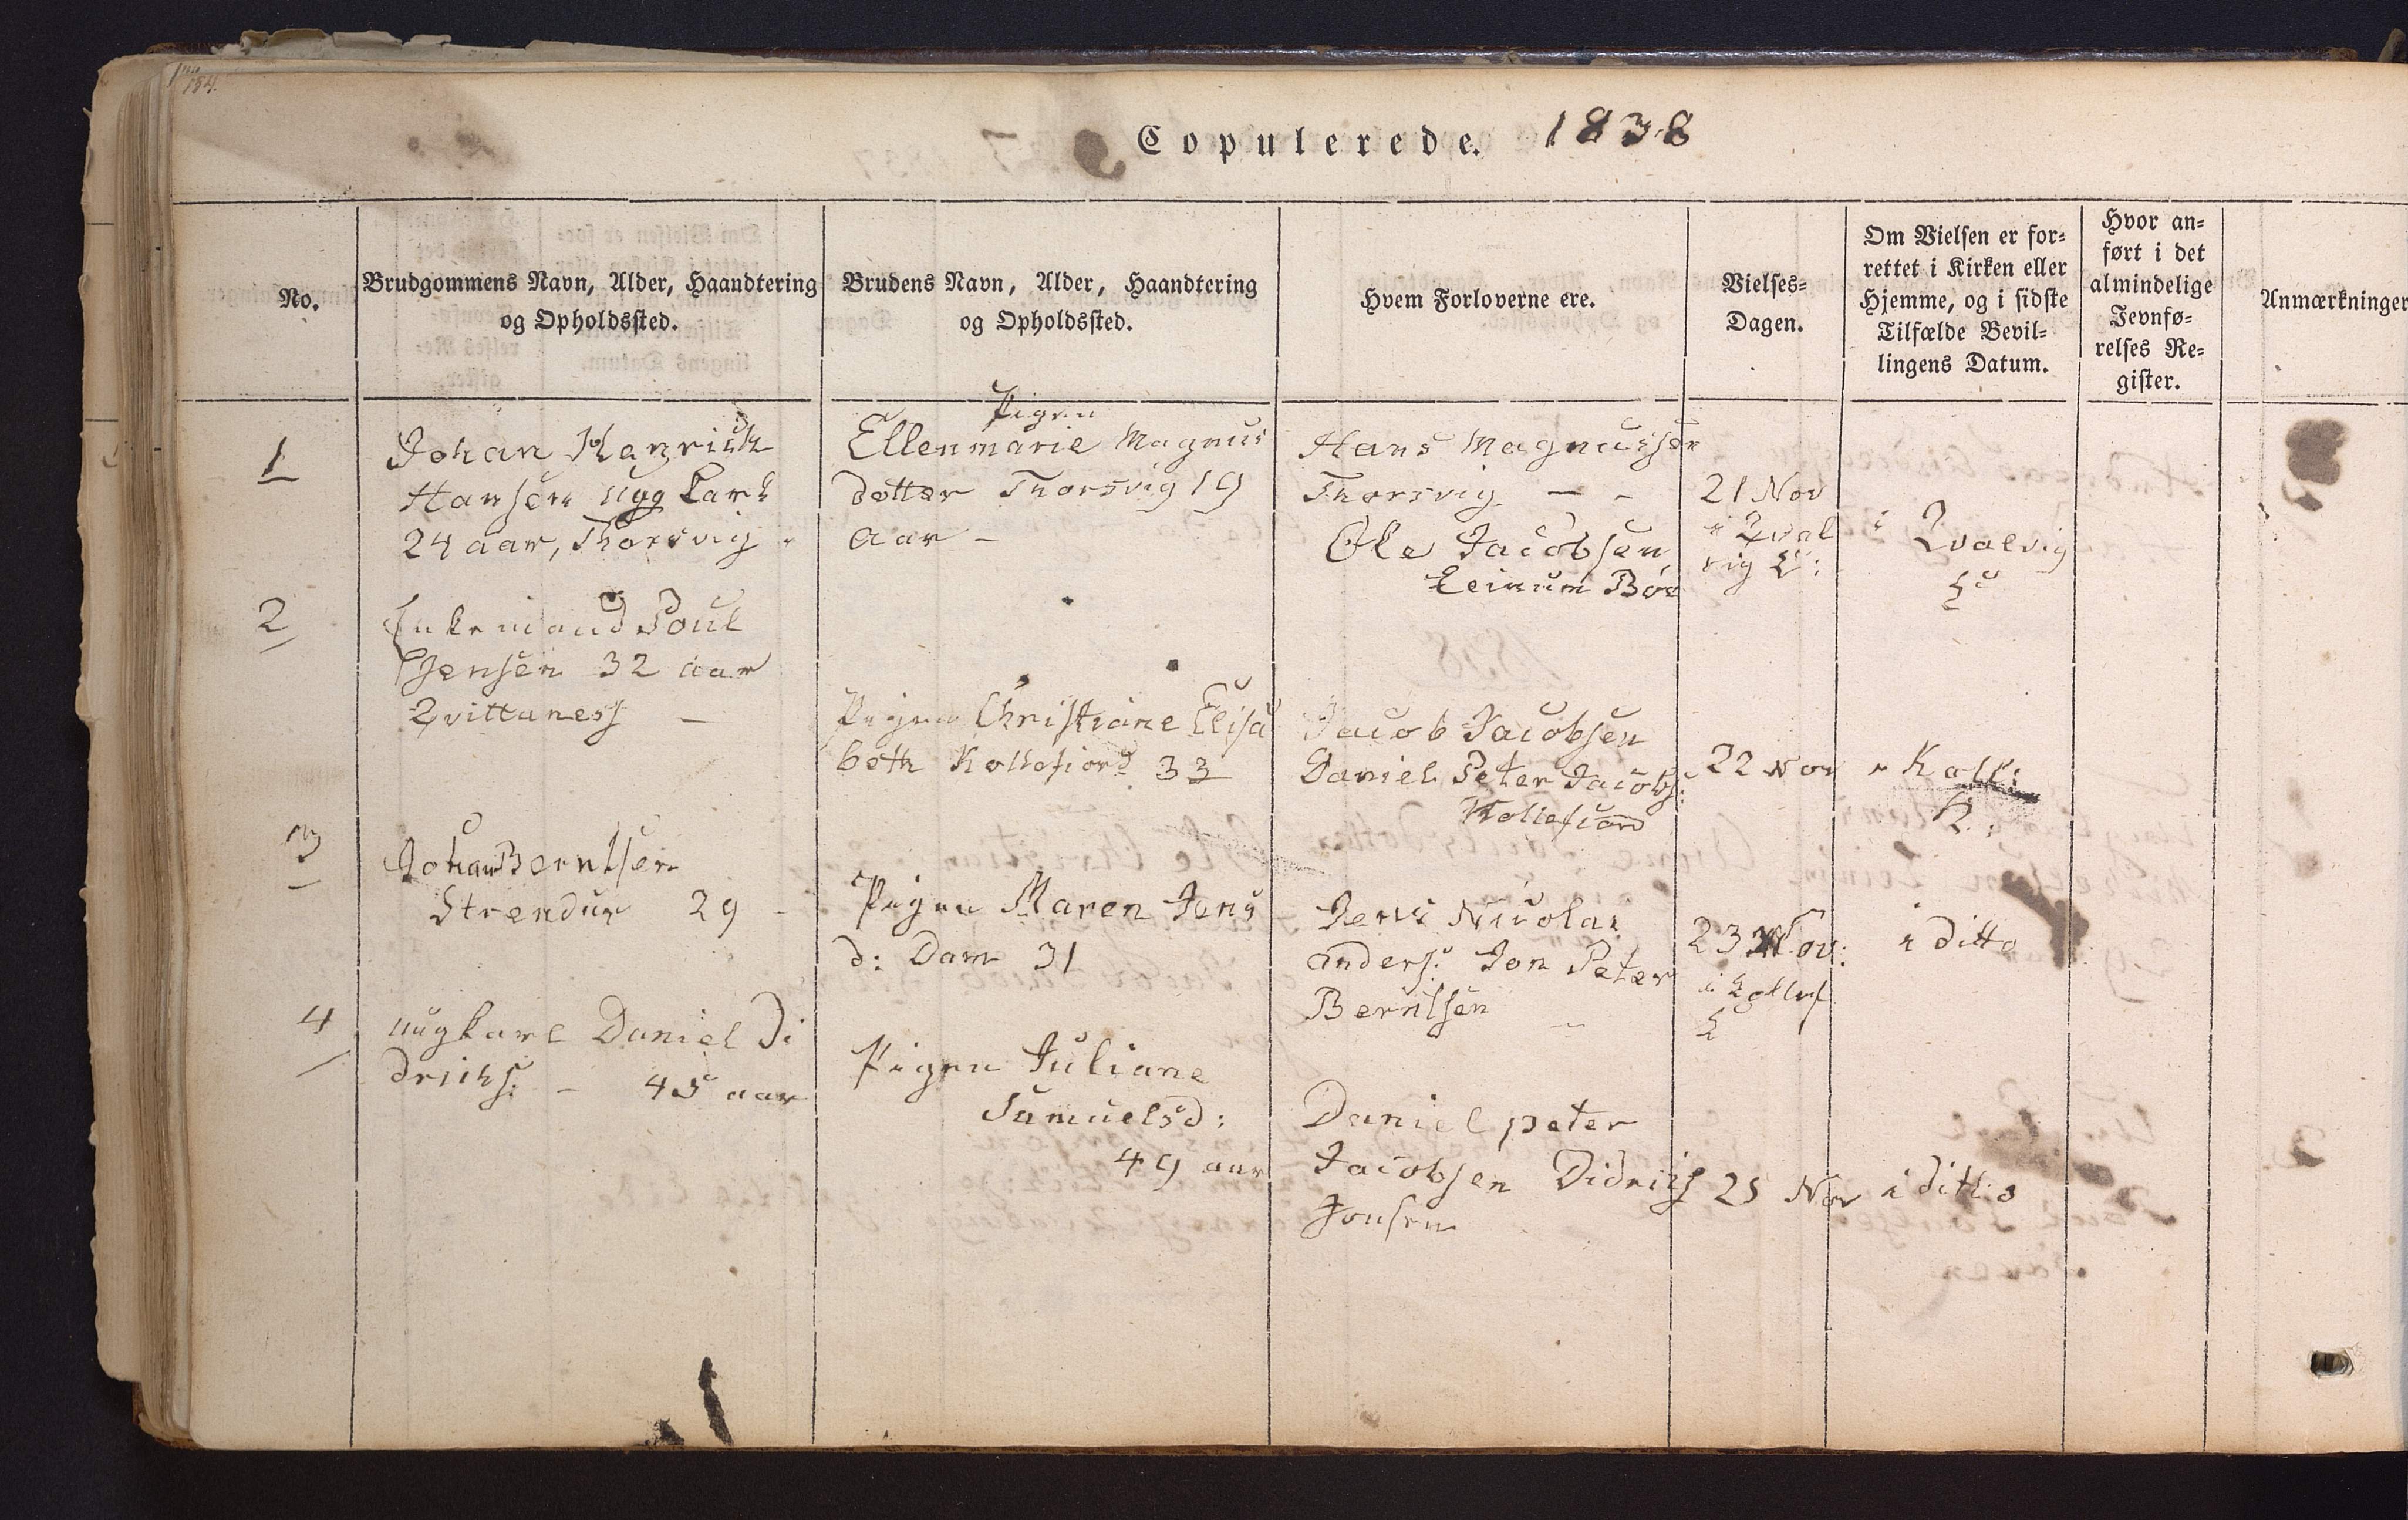 184.
Copulerede. 1838
No.
Brudgommens Navn, Alder, Haandtering
og Opholdssted.
Brudens Navn, Alder, Haandtering
og Opholdssted.
Hvem Forloverne ere.
Vielses-
Dagen.
Om Vielsen er for-
rettet i Kirken eller
Hjemme, og i sidste
Tilfælde Bevil-
lingens Datum.
Hvor an-
ført i det
almindelige
Jevnfø-
relses Re-
gister.
Anmærkninger
1
Johan
Hansen ugg Karl
24 aar, Thorsvig
Pigen
Ellenmarie Magnus
dotter Thorsvig 19
Aar -
Hans Magnussen
Thorsvig - -
Ole Jacobsen
Leinum Bør
21 Nov
i Qval
vig K:
i Qvalvig
K
2
Enkemand Poul
Jensen 32 aar
Qvittaness -
Pigen Christiane Elisa
beth Kollefiord 33
Jacob Jacobsen
Daniel Peter Jacobs:
Kollefiord
22 Nov
i Koll:
K:
3
Johan Berntsen
Strendur 29 -
Pigen Maren Jens
d: Dam 31
Jens Nicolai
anders: Jon Peter
Berntsen
23 Nov:
i Kollef
K
i ditto
4
ungkarl Daniel Di
drichs: - 45 aar
Pigen Juliane
Samuelsd:
49 aar
Daniel peter
Jacobsen Didrichs
Jonsen
25 Nov
i ditto